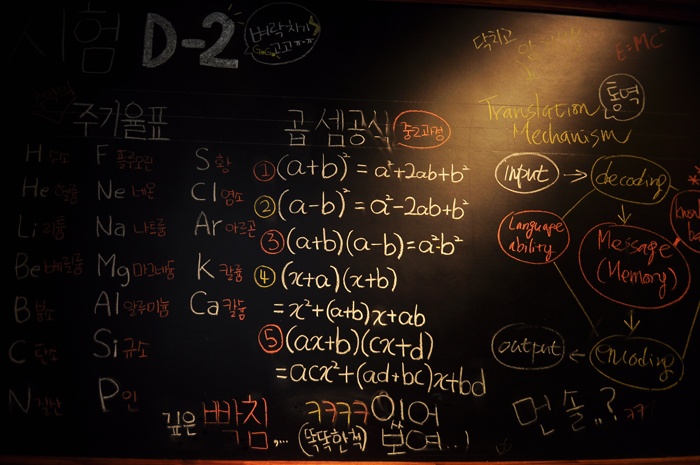 시험 D-2
벼락치기
고고ㅠ-ㅠ
닥치고
E=MC²
주기율표
H 수소 F 플루오린 S 황
He 헬륨 Ne 네온 Cl 염소
Li 리튬 Na 나트륨 Ar 아르곤
Be 베릴륨 Mg 마그네슘 K 칼륨
B 붕소 Al 알루미늄 Ca 칼슘
C 탄소 Si 규소
N P 인
곱셈공식 중2과정
① (a+b)² = a²+2ab+b²
② (a-b)² = a²-2ab+b²
③ (a+b)(a-b)=a²b²
④ (x+a)(x+b)
= x²+(a+b)x+ab
⑤ (ax+b)(cx+d)
=acx²+(ad+bc)x+bd
Translation 통역
Mechanism
input → decoding
Language
ability
Message
(Memory)
output ← encoding
깊은 빡침....
ㅋㅋㅋㅋ있어
(똑똑한척) 보여..!
먼솔..? ㅋㅋ